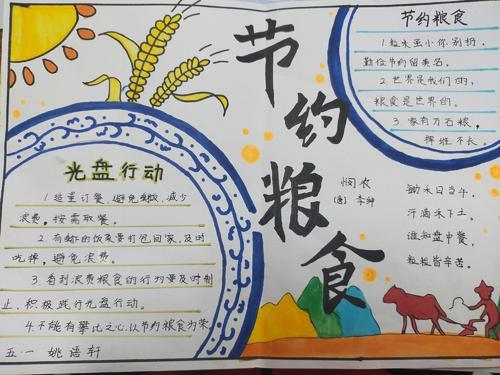 节约粮食
节约粮食
1.粒米虽小你别扔
勤俭节约留美名。
2.世界是我们的,
粮食是世界的。
3.家有万石粮,
挥班不长。
悯农
(唐) 李绅
锄禾日当午,
汗滴禾下土。
谁知盘中餐,
粒粒皆辛苦。
光盘行动
1.适量订餐,避免剩餐,减少
浪费。按需取餐。
2.有剩的饭菜要打包回家,及时
吃掉,避免浪费。
3.看到浪费粮食的行为要及时制
止,积极践行光盘行动。
4.不能有攀比之心,以节约粮食为荣
五·一 姚语轩